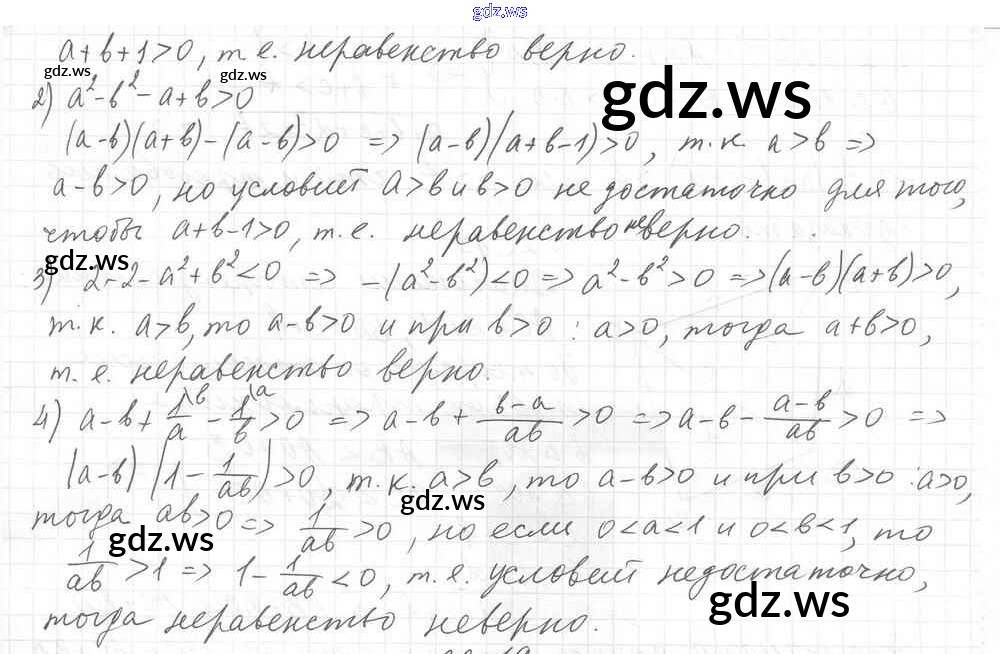 gdz.ws
a+b+1>0, т.е. неравенство верно.
gdz.ws gdz.ws gdz.ws
2) a²-b²-a+b>0
(a-b)(a+b)-(a-b)>0 => (a-b)(a+b-1)>0, т.к. a>b =>
a-b>0, но условий a>b и b>0 не достаточно для того,
чтобы a+b-1>0, т.е. неравенство не верно.
gdz.ws
3) 2-2-a²+b²<0 => -(a²-b²)<0 => a²-b²>0 => (a-b)(a+b)>0,
т.к. a>b, то a-b>0 и при b>0 : a>0, тогда a+b>0,
т.е. неравенство верно.
4) a-b+1\b/a-1\a/b>0 => a-b+(b-a)/ab>0 => a-b-(a-b)/ab>0 =>
(a-b)(1-1/ab)>0, т.к. a>b, то a-b>0 и при b>0 : a>0,
gdz.ws
тогда ab>0 => 1/ab>0, но если 0<a<1 и 0<b<1, то
gdz.ws
1/ab>1 => 1-1/ab<0, т.е. условий недостаточно,
gdz.ws
тогда неравенство неверно.